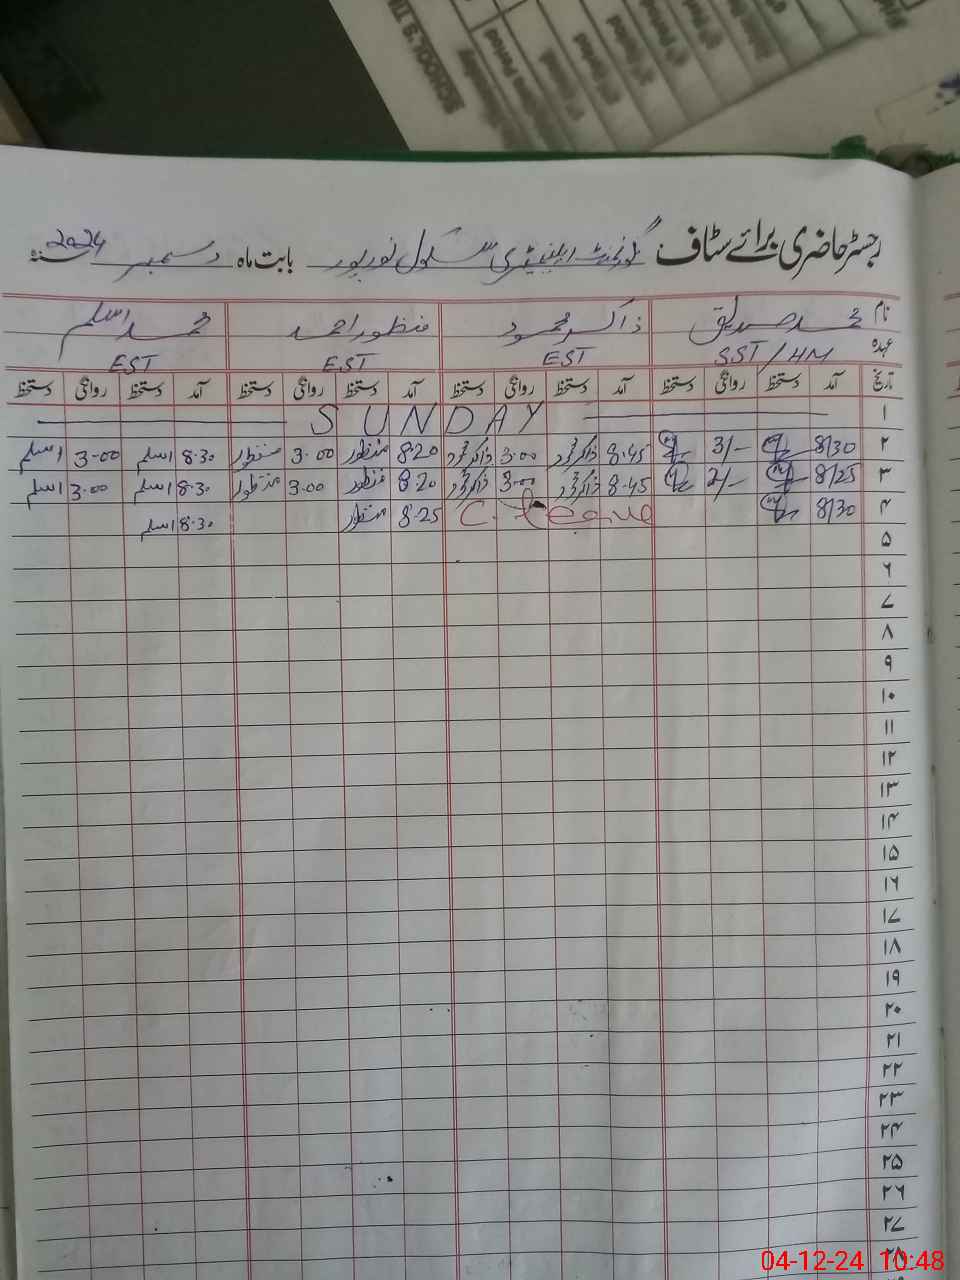 SCHOOL'S TI
رجسٹر حاضری برائے سٹاف گورنمنٹ ایلیمنٹری سکول نورپور بابت ماہ دسمبر سنہ 2024
نام محمد صدیق ذاکر محمود منظور احمد محمد اسلم
عہدہ SST/HM EST EST EST
تاریخ آمد دستخط روانگی دستخط آمد دستخط روانگی دستخط آمد دستخط روانگی دستخط آمد دستخط روانگی دستخط
۱ SUNDAY
۲ 8/30 3/- 8.45 ذاکر محمود 3.00 ذاکر محمود 8.20 منظور 3.00 منظور 8.30 اسلم 3.00 اسلم
۳ 8/25 2/- 8.45 ذاکر محمود 3.00 ذاکر محمود 8.20 منظور 3.00 منظور 8.30 اسلم 3.00 اسلم
۴ 8/30 C. leave 8.25 منظور 8.30 اسلم
۵
۶
۷
۸
۹
۱۰
۱۱
۱۲
۱۳
۱۴
۱۵
۱۶
۱۷
۱۸
۱۹
۲۰
۲۱
۲۲
۲۳
۲۴
۲۵
۲۶
۲۷
۲۸
04-12-24 10:48